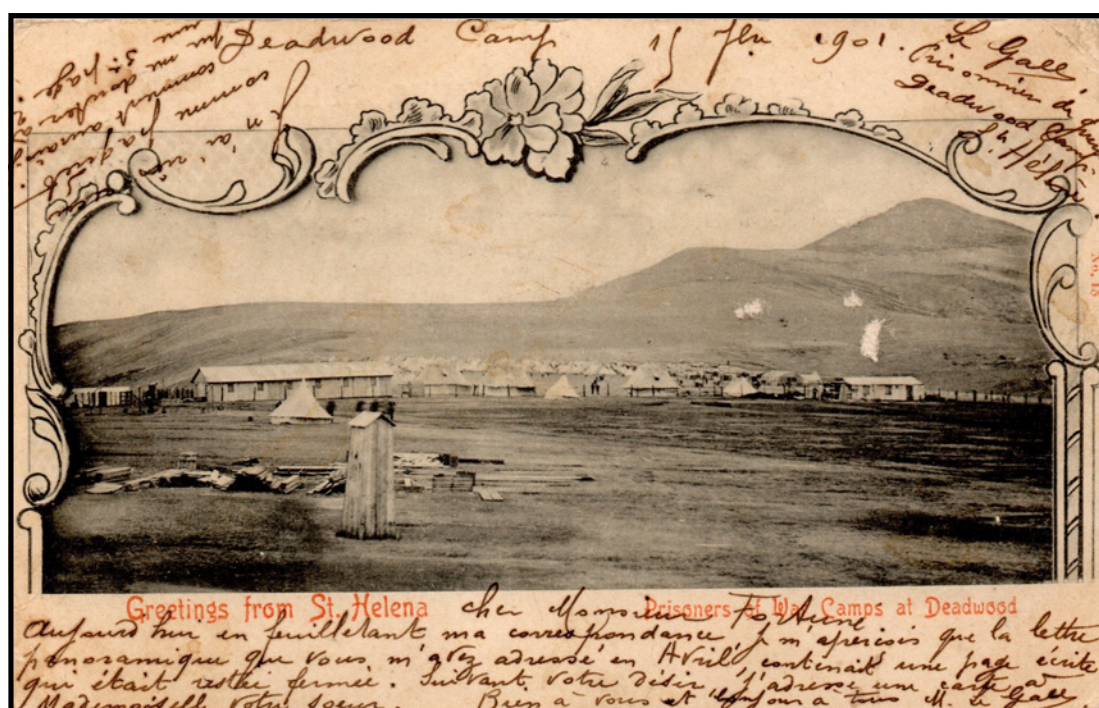 Deadwood Camp 15 1901.
Le Gall
Prisonnier de guerre
Deadwood Camp.
Ste Hélène
Je n'ai
comme
comment
me
page
No. 13
Greetings from St. Helena
Prisoners of War Camps at Deadwood
cher Monsieur Fortuné
Aujourd'hui en feuilletant ma correspondance, je m'aperçois que la lettre
panoramique que vous m'avez adressé en Avril, contenait une page écrite
qui était restée fermée. Suivant votre désir j'adresse une carte à
Mademoiselle votre soeur. Bien à vous et bonjour à tous M. Le Gall